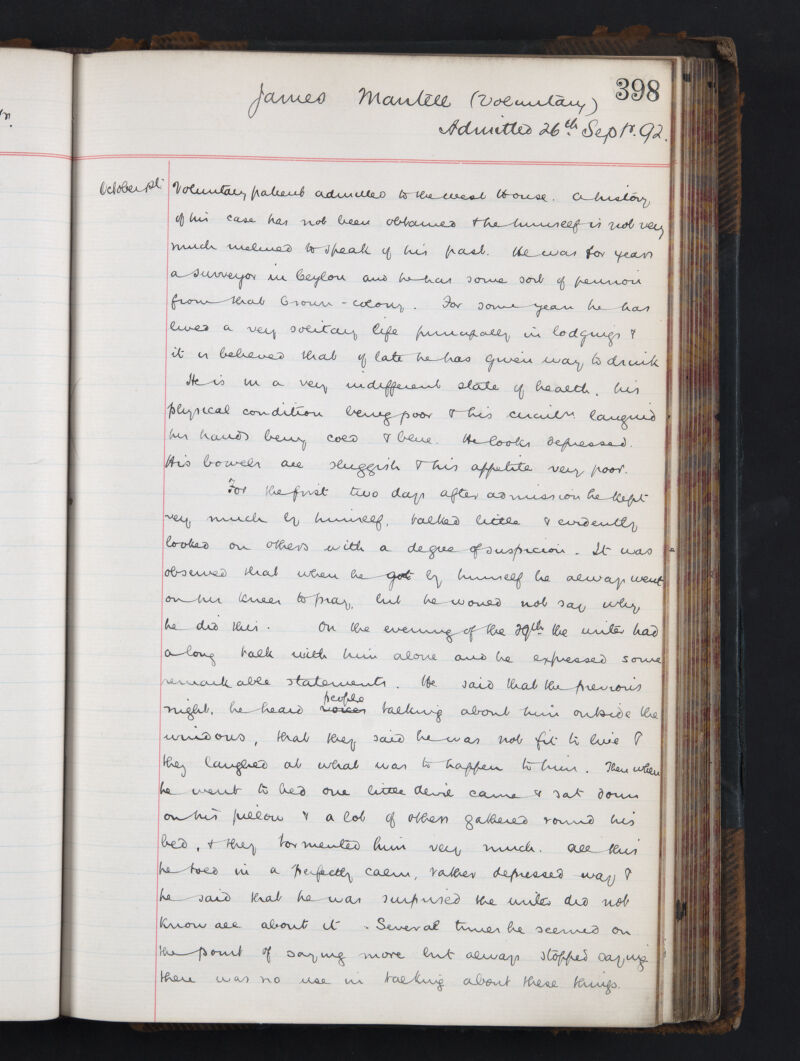 398
James Mantell (Voluntary)
Admitted 26th Septr. 92.
October 1st
Voluntary patient admitted to the West House. A history
of his case has not been obtained & he himself is not very
much inclined to speak of his past. He was for years
a surveyor in Ceylon and he has some sort of pension
from that Crown-colony. For some years he has
lived a very solitary life principally in lodgings &
it is believed that of late he has given way to drink
He is in a very indifferent state of health, his
physical condition being poor & his circuln languid
his hands being cold & blue. He looks depressed.
His bowels are sluggish & his appetite very poor.
For the first two days after admission he kept
very much by himself, talked little & evidently
looked on others with a degree of suspicion. It was
observed that when he got by himself he always went
on his knees to pray, but he would not say why
he did this. On the evening of the 29th the writer had
a long talk with him alone and he expressed some
remarkable statements. He said that the previous
night, he heard voices people talking about him outside the
windows, that they said he was not fit to live &
they laughed at what was to happen to him. Then when
he went to bed one little devil came & sat down
on his pillow & a lot of others gathered round his
bed, & they tormented him very much. All this
he told in a perfectly calm, rather depressed way &
he said that he was surprised the writer did not
know all about it. Several times he seemed on
the point of saying more but always stopped saying
there was no use in talking about these things.